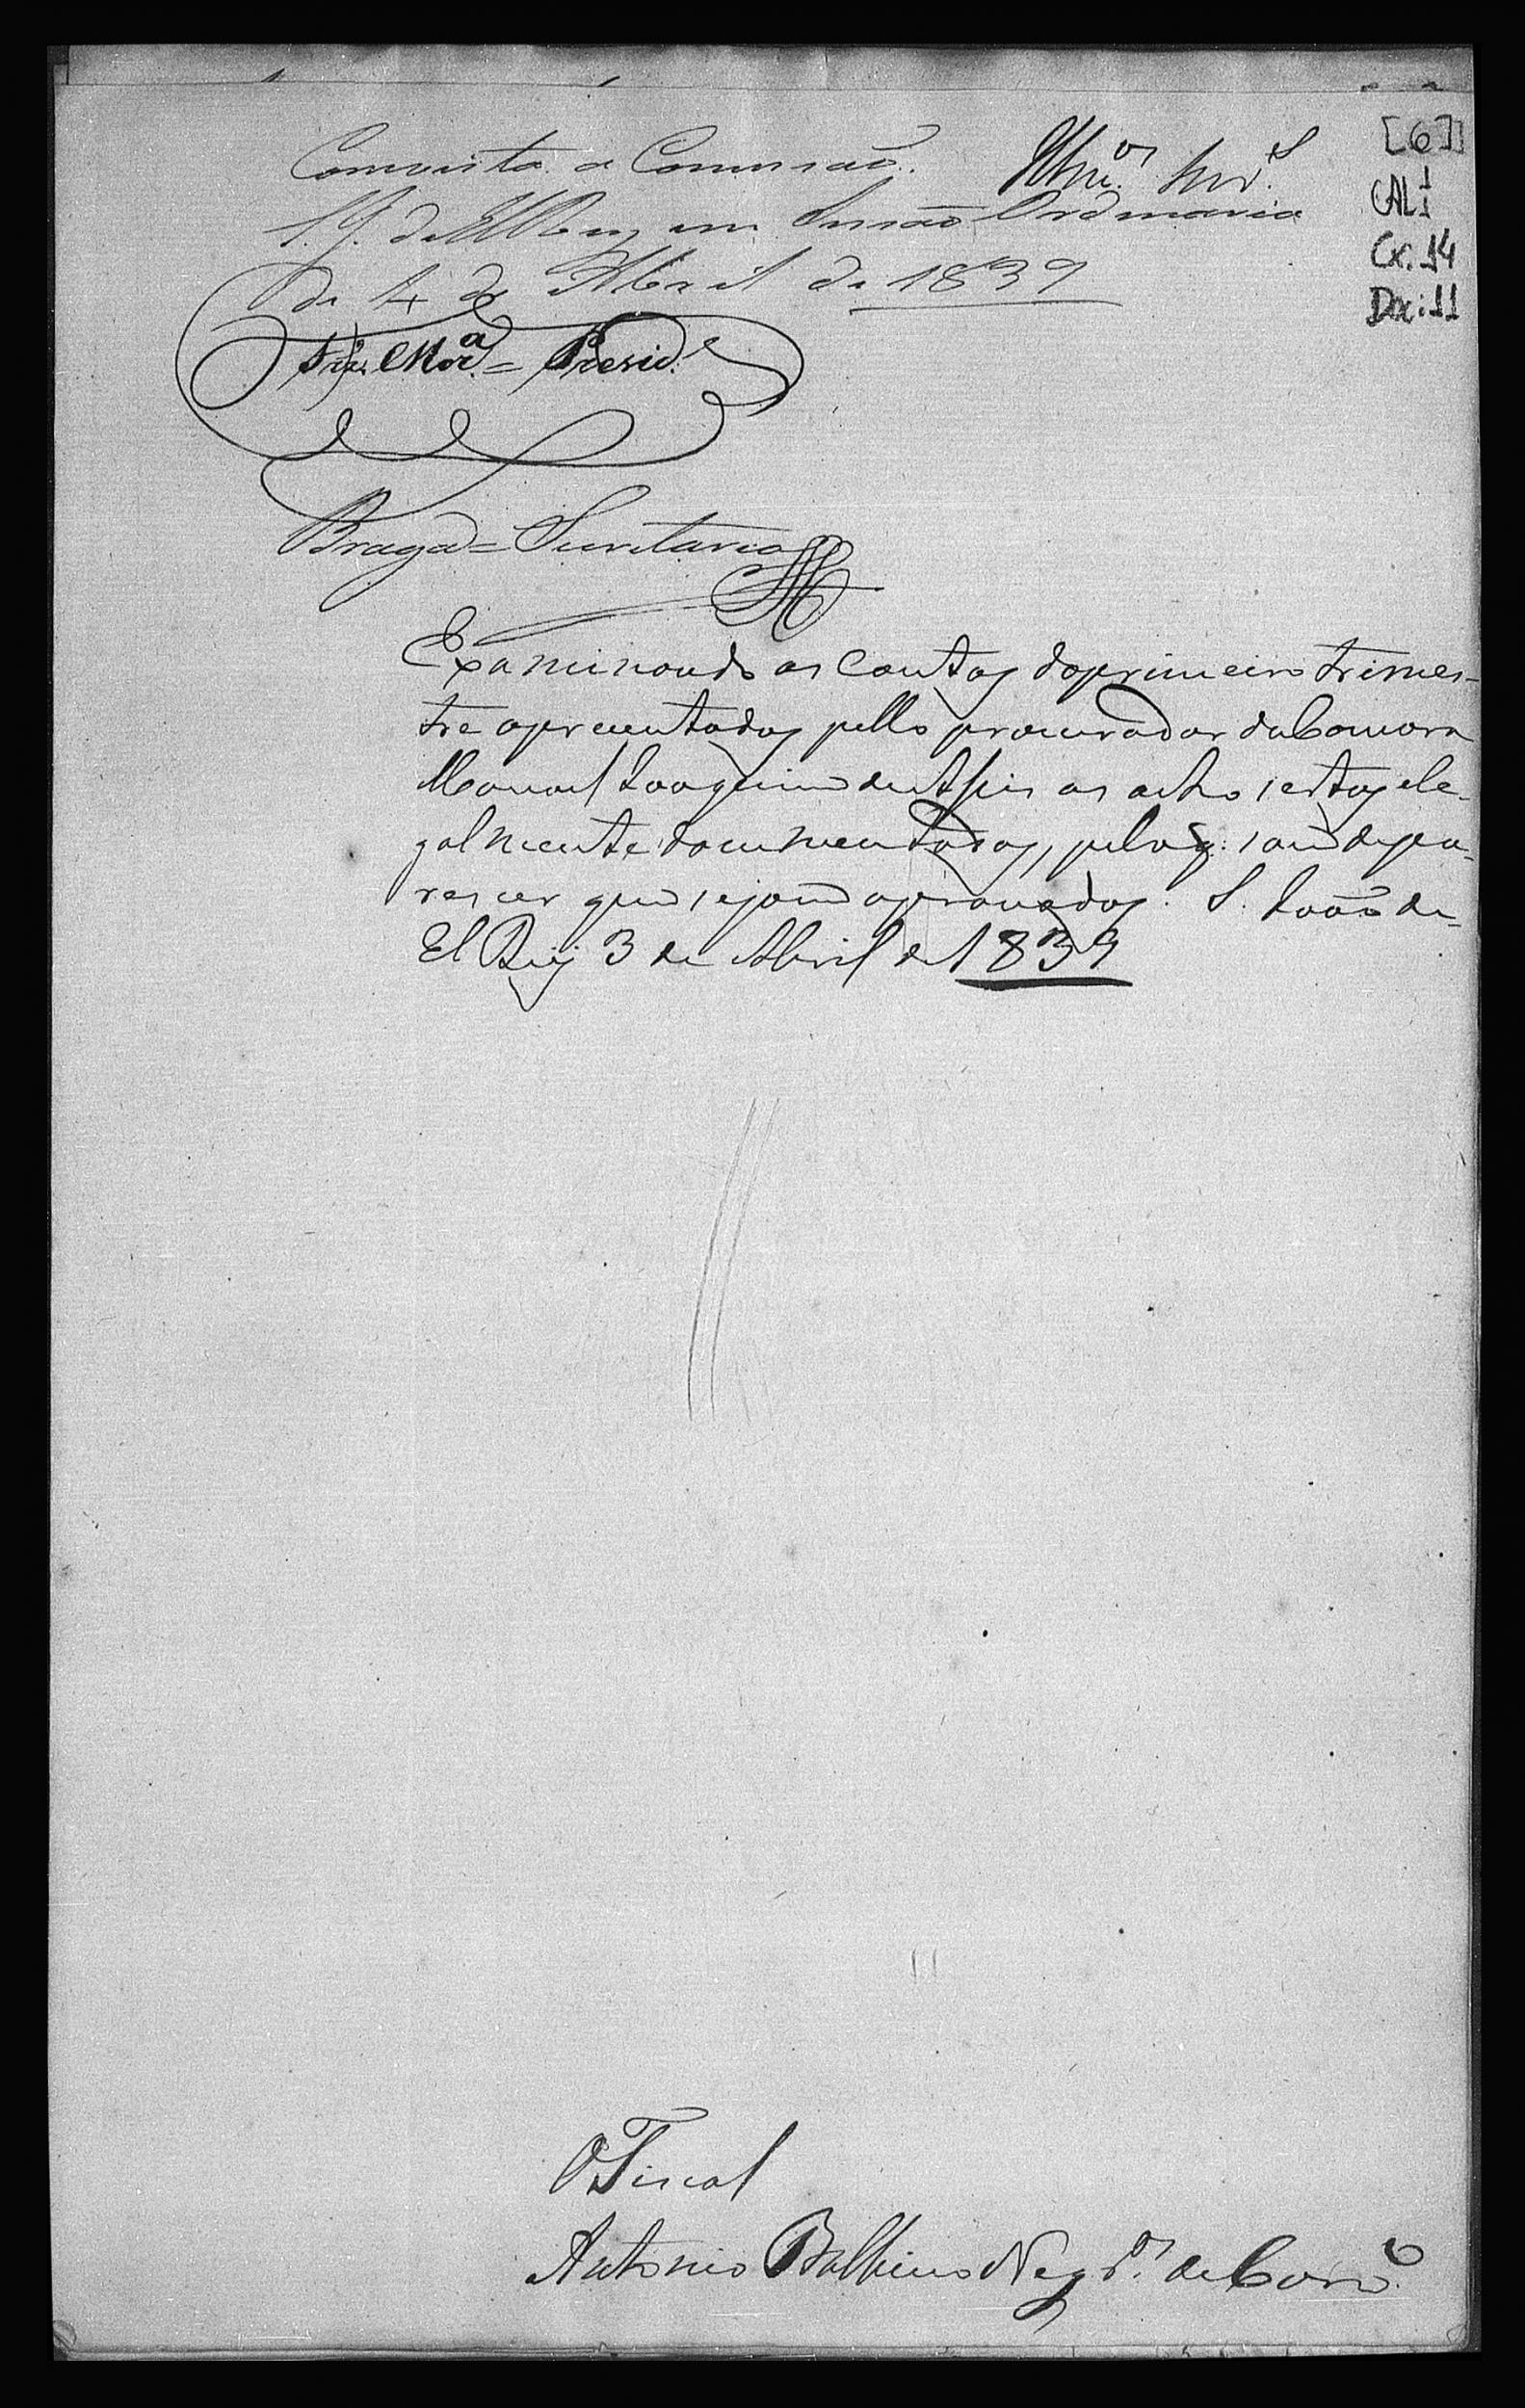 [6]
CAL 1
Cx. 14
Doc: 11
Illm.os Snr.s
a Comissaõ.
em Sessaõ Ordinaria
de 4 de Abril de 1839
Presid.e
Braga = Secretario
Examinando as Contas do primeiro trimes-
tre aprezentadas pello procurador da Camara
Manoel Joaquim de Assis as acho sertas ele-
galmente documentadas, pelo q. sou de pa-
rescer que sejaõ aprouadas. S. Joaõ de
El Rey 3 de Abril de 1839
O Fiscal
Antonio Balbino Negr.os de Carv.o